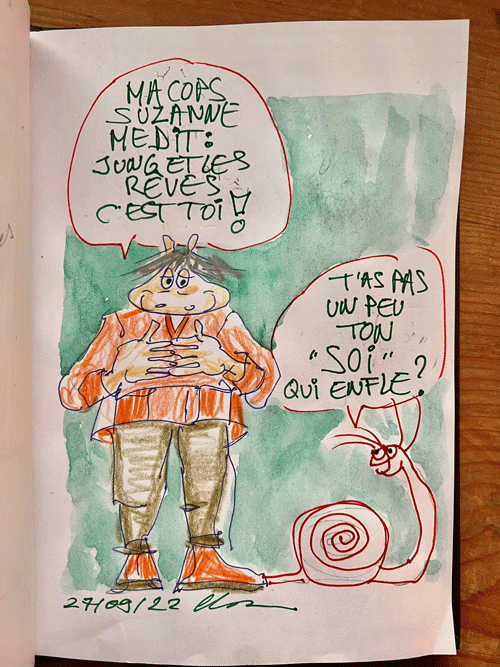 MA COPS
SUZANNE
ME DIT :
JUNG ET LES
RÊVES
C'EST TOI !
T'AS PAS
UN PEU
TON
"SOI"
QUI ENFLE ?
27/09/22